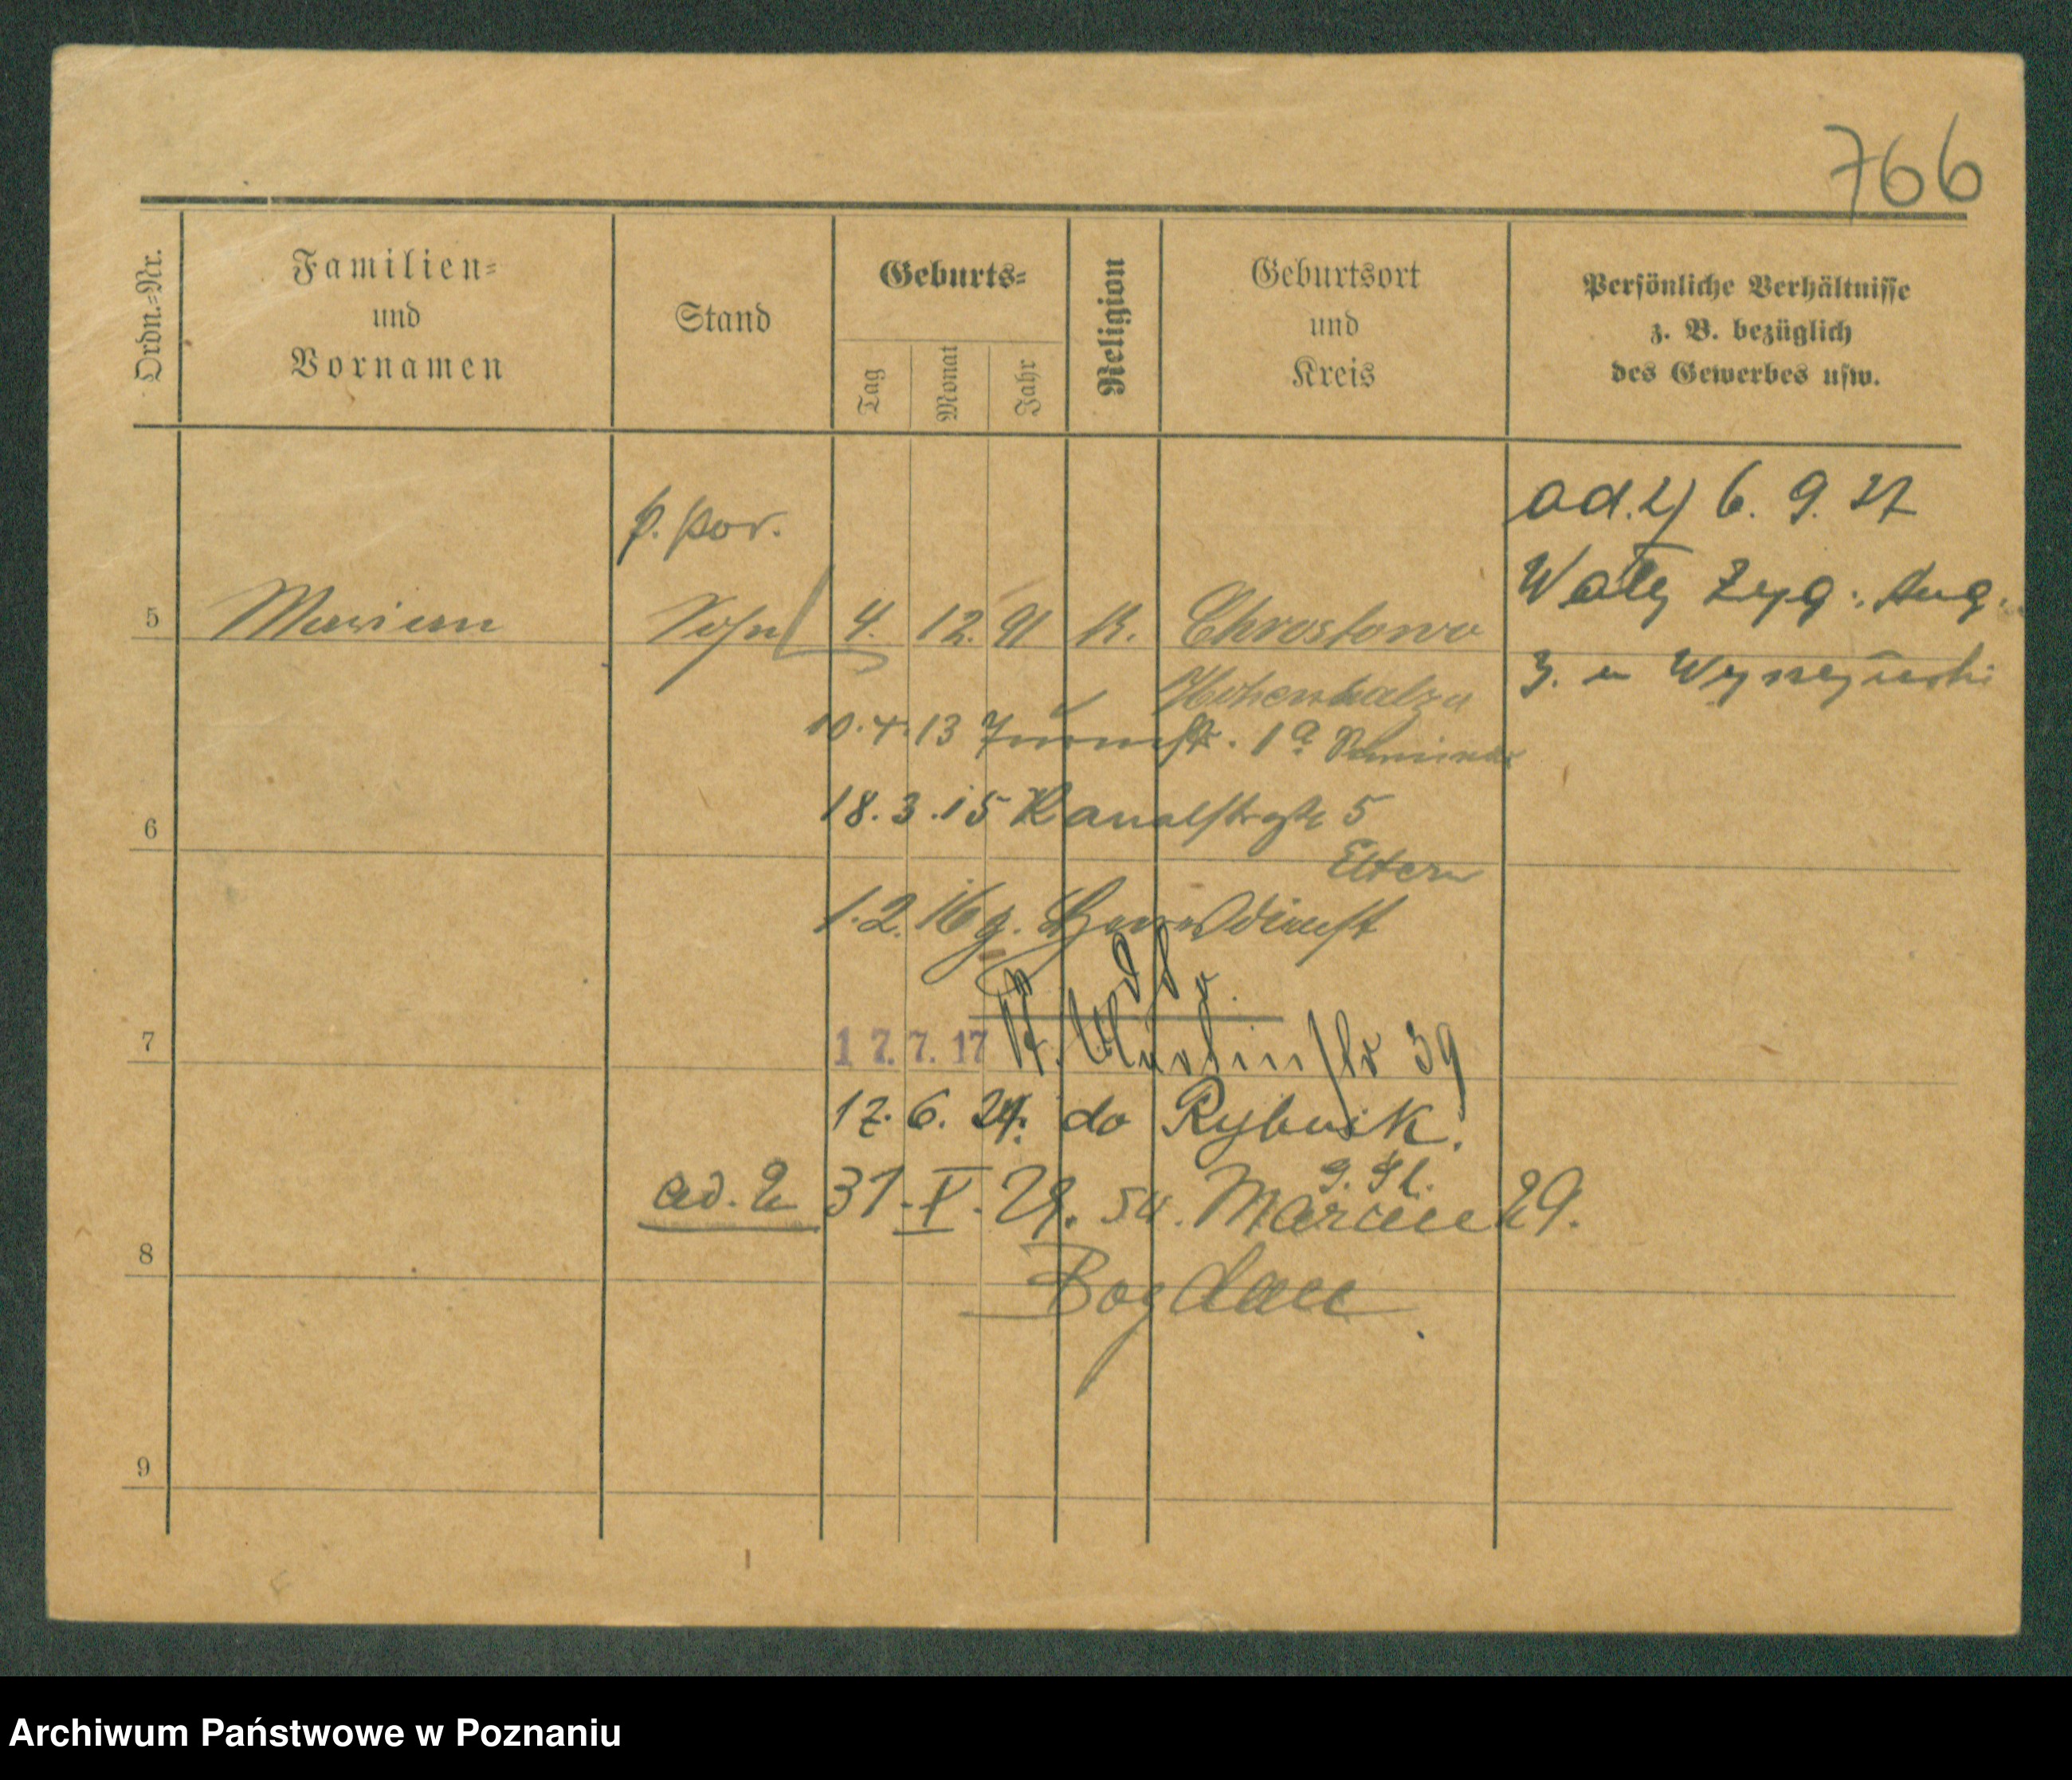 766
Ordn.=Nr.
Familien=
und
Vornamen
Stand
Geburts=
Tag
Monat
Jahr
Religion
Geburtsort
und
Kreis
Persönliche Verhältnisse
z. B. bezüglich
des Gewerbes usw.
p. por.
ad. 2) 6. 9. 27
Wały Zyg. Aug.
5 Marian Sohn 4. 12. 91 K. Chrostowo
Hohensalza
3. u
10. 4. 13 1a Seminar
18. 3. 15 Kanalstraße 5
6
Eltern
1. 2. 16 g. Heeresdienst
7
17. 7. 17 St. Martinstr 39
17. 6. 24. do Rybnik.
ad. 2 31. V. 29. św. Marcin 29.
8
Bogdan
9
Archiwum Państwowe w Poznaniu